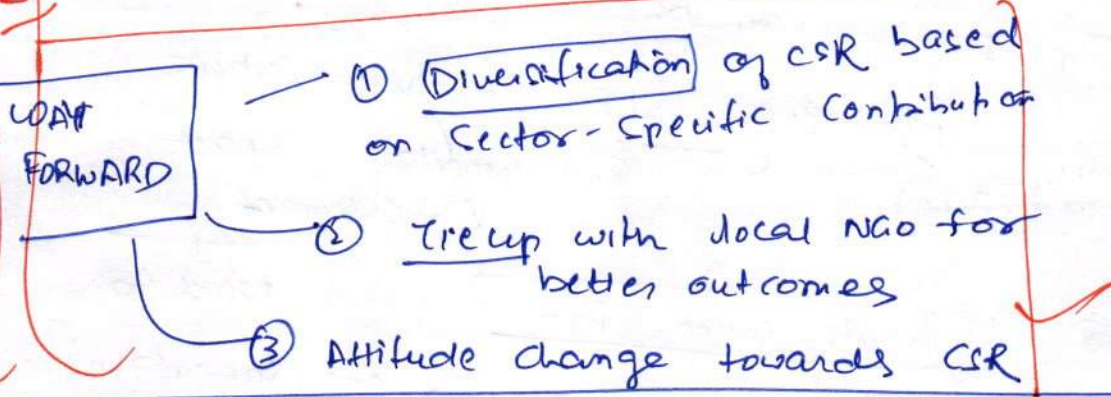 WAY
FORWARD
① Diversification of CSR based
on Sector-Specific Contribution
② Tie up with local NGO for
better outcomes
③ Attitude change towards CSR